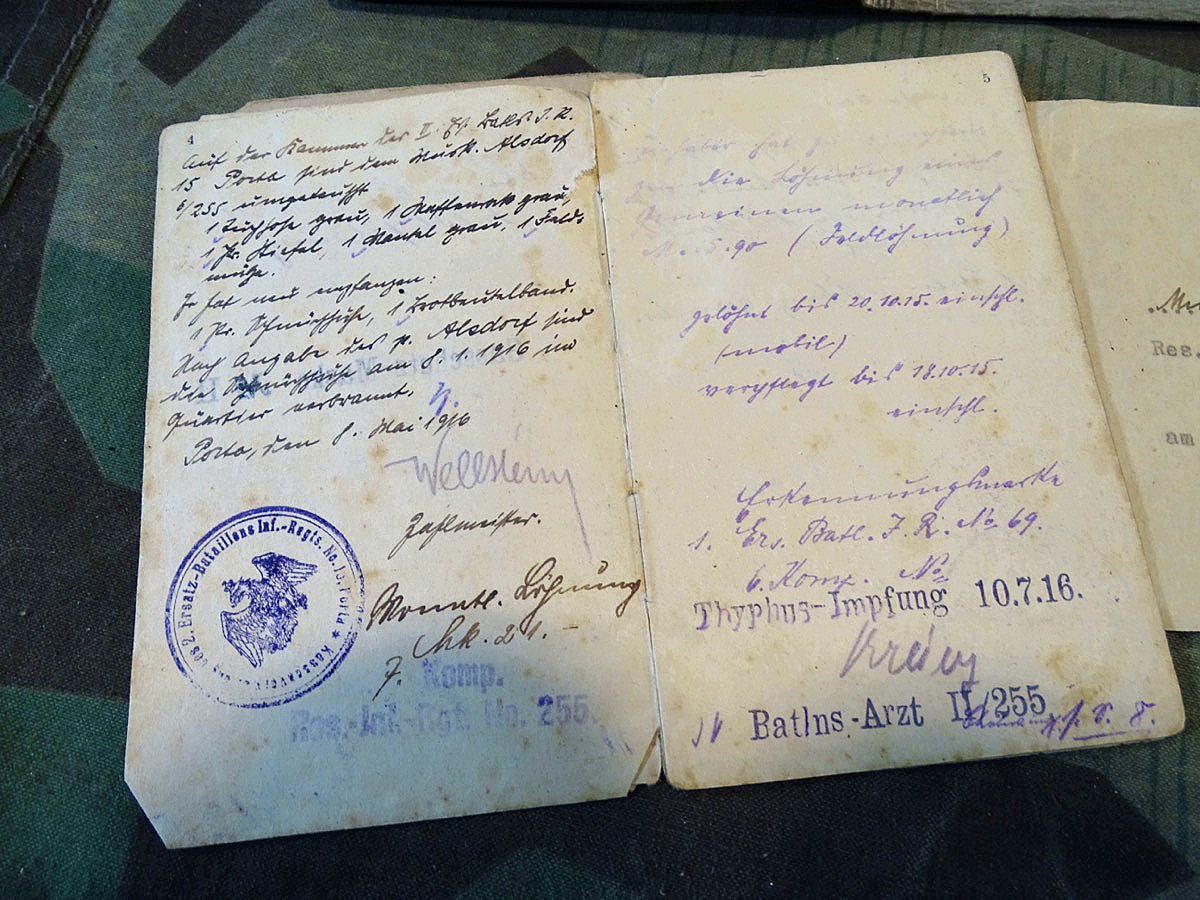 4
Auf der Kammer des II. Batls. I. R.
15 Porta sind dem Musk. Alsdorf
6/255 umgetauscht
1 Tuchhose grau, 1 Waffenrock grau,
1 Pr. Stiefel, 1 Mantel grau, 1 Feld-
mütze.
Er hat neu empfangen:
1 Pr. Schnürschuhe, 1 Brotbeutelband.
Nach Angabe des p. Alsdorf sind
die Schnürschuhe am 8. 1. 1916 im
Quartier verbrannt.
Porta, den 8. Mai 1916
Zahlmeister.
des 2. Ersatz-Bataillons Inf.-Regts. No. 15. Porta ★
Monatl. Löhnung
7. Komp.
Res.-Inf.-Rgt. No. 255.
5
Inhaber hat
die Löhnung eines
Gemeinen monatlich
M. 5.90 (Feldlöhnung)
gelöhnt bis 20.10.15. einschl.
(mobil)
verpflegt bis 18.10.15.
einschl.
Erkennungsmarke
1. Ers. Batl. I. R. No 69.
6. Komp. No
Thyphus-Impfung 10.7.16.
Batlns.-Arzt II/255
Res.
am